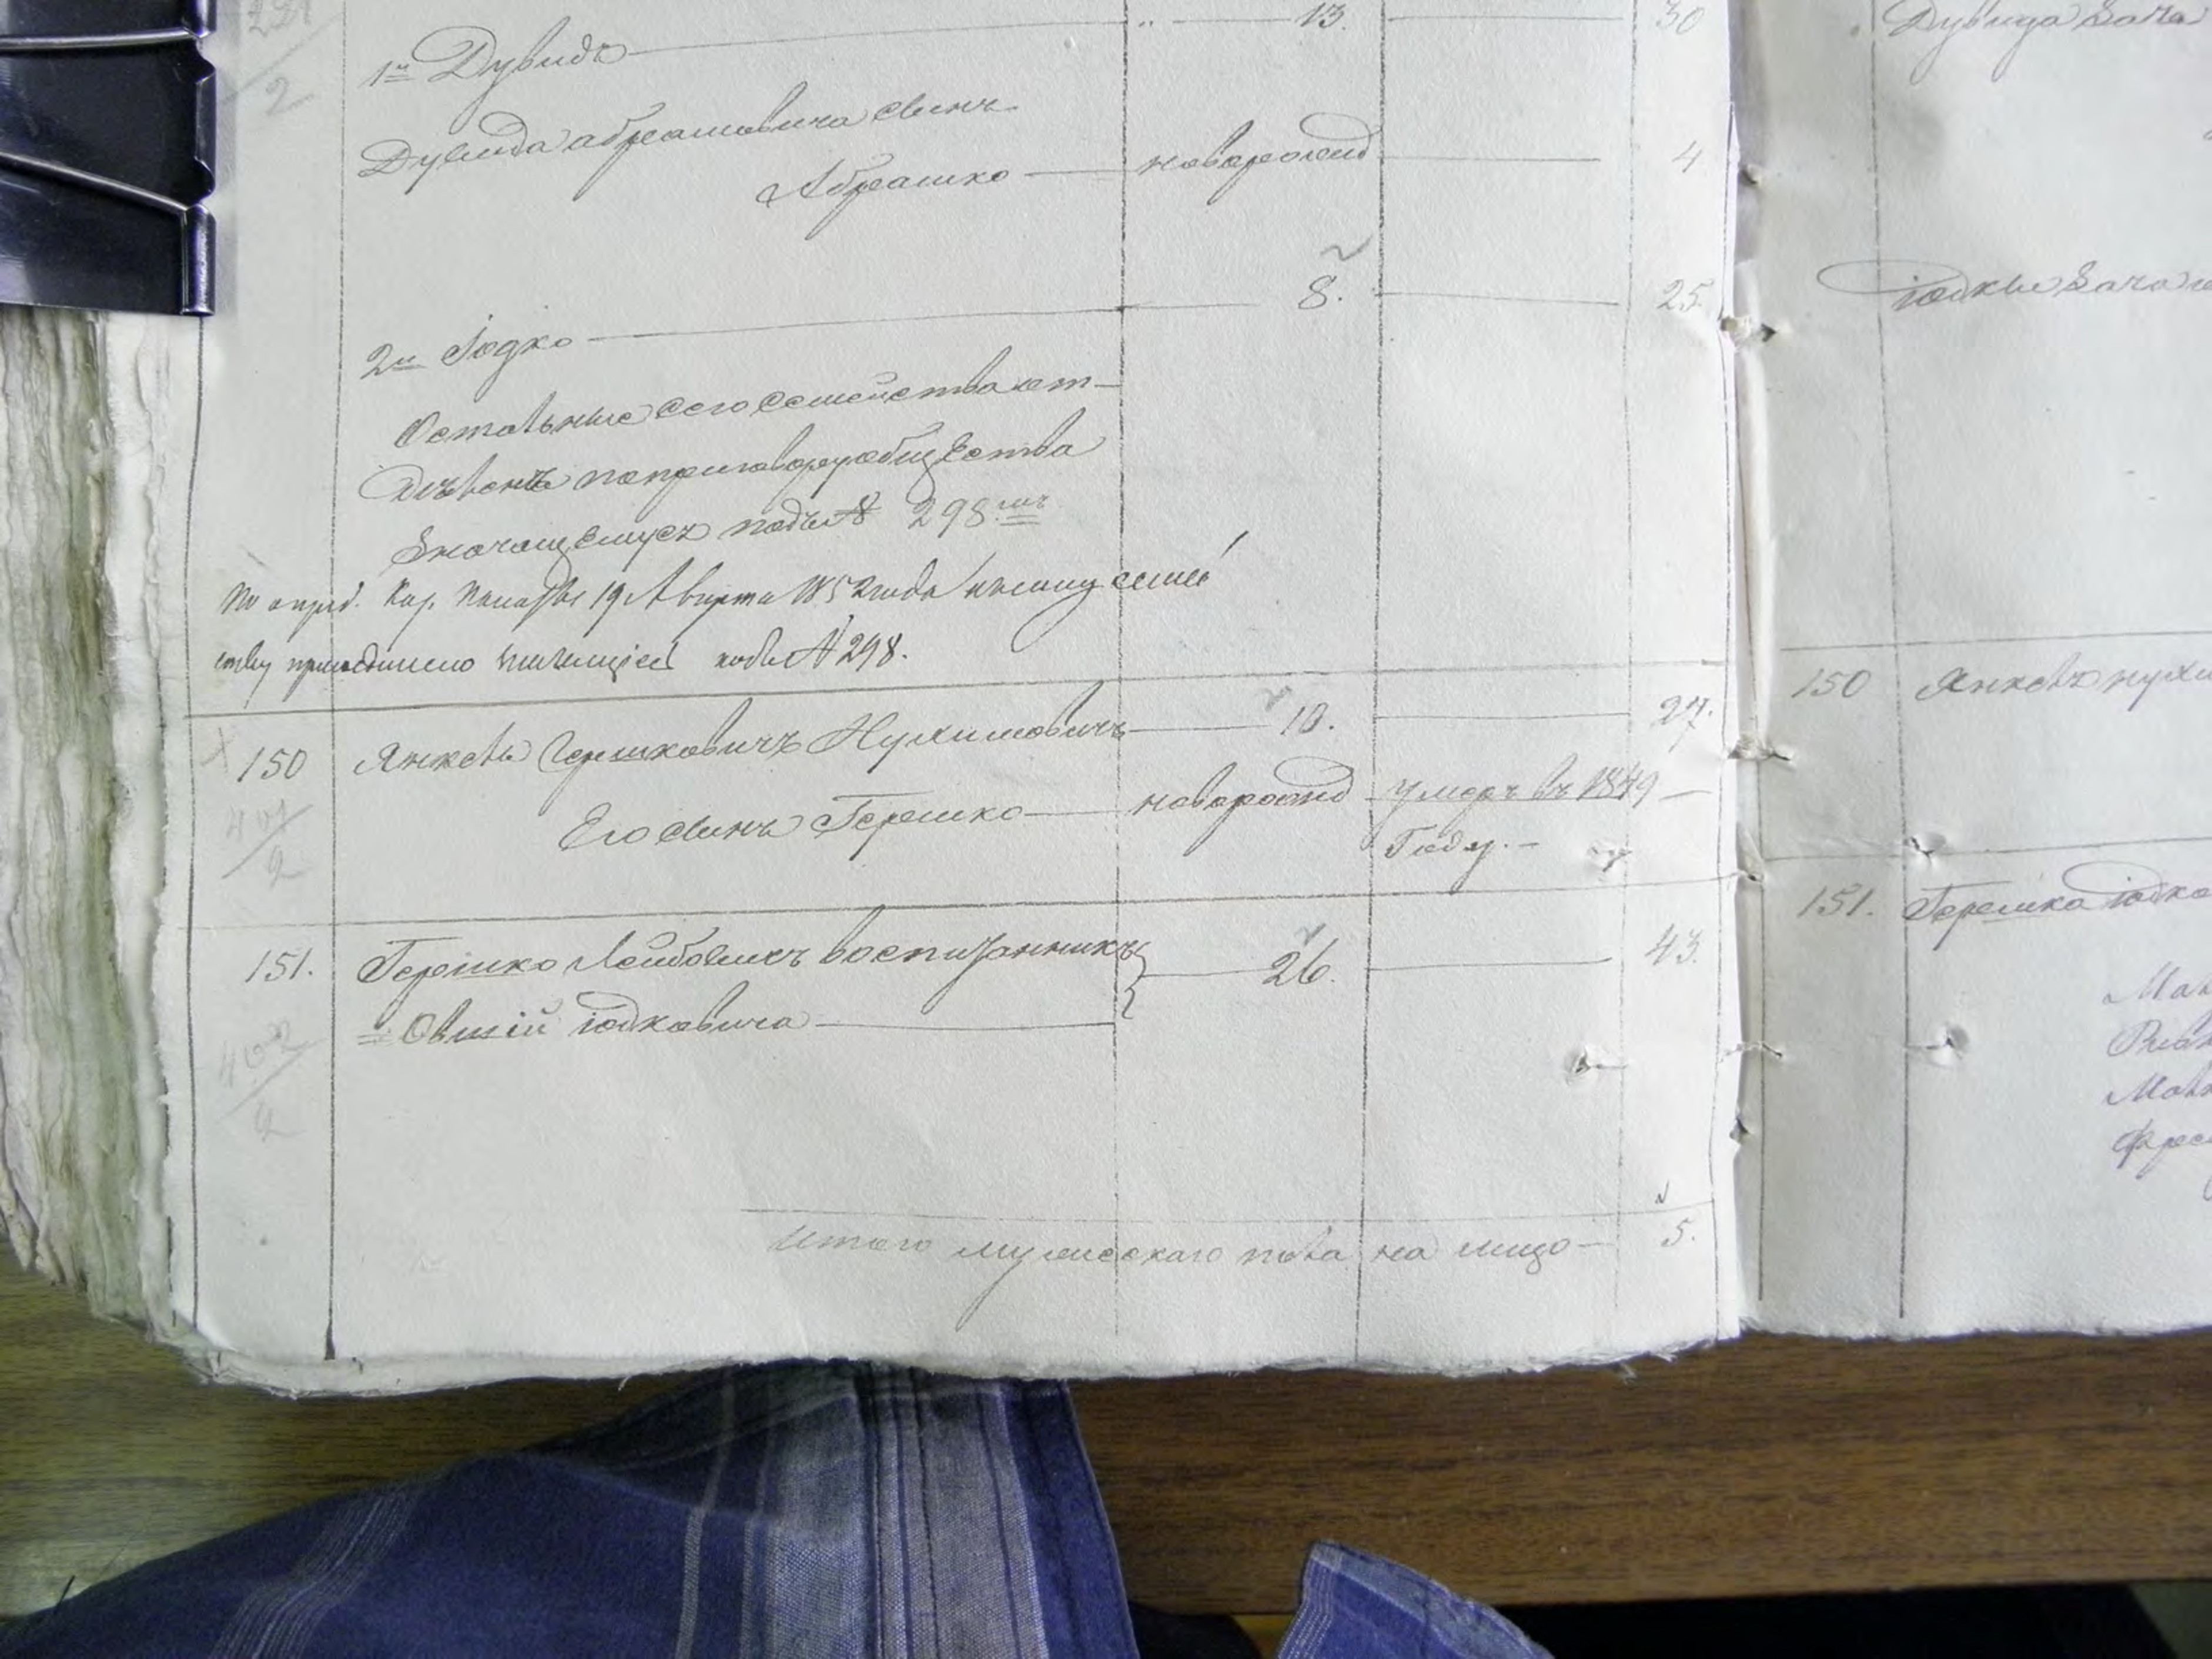 1й Дувидъ " 13. 30
Дувида Абрамовича сынъ
Абрашко новорожд 4
2й Іодко 8. 25.
Остальные сего семейства от-
по приговору общества
значащемуся подъ № 298мъ
По опред. Каз. Палаты 19 Августа 1852 года къ сему семей
ству причислено значущіеся подъ № 298.
150 Янкель Гершковичъ Нухимовичъ 10. 27.
Его сынъ Гершко новорожд умеръ въ 1849
401/2 Году.
151. Гершко Лейбовичъ воспитанникъ 26. 43.
Овшій Іодковича
402/2
Итого мужескаго пола на лицо 5.
Дувида Зана
Іодки Зана
150 Янкель Нухи
151. Гершка Іодко